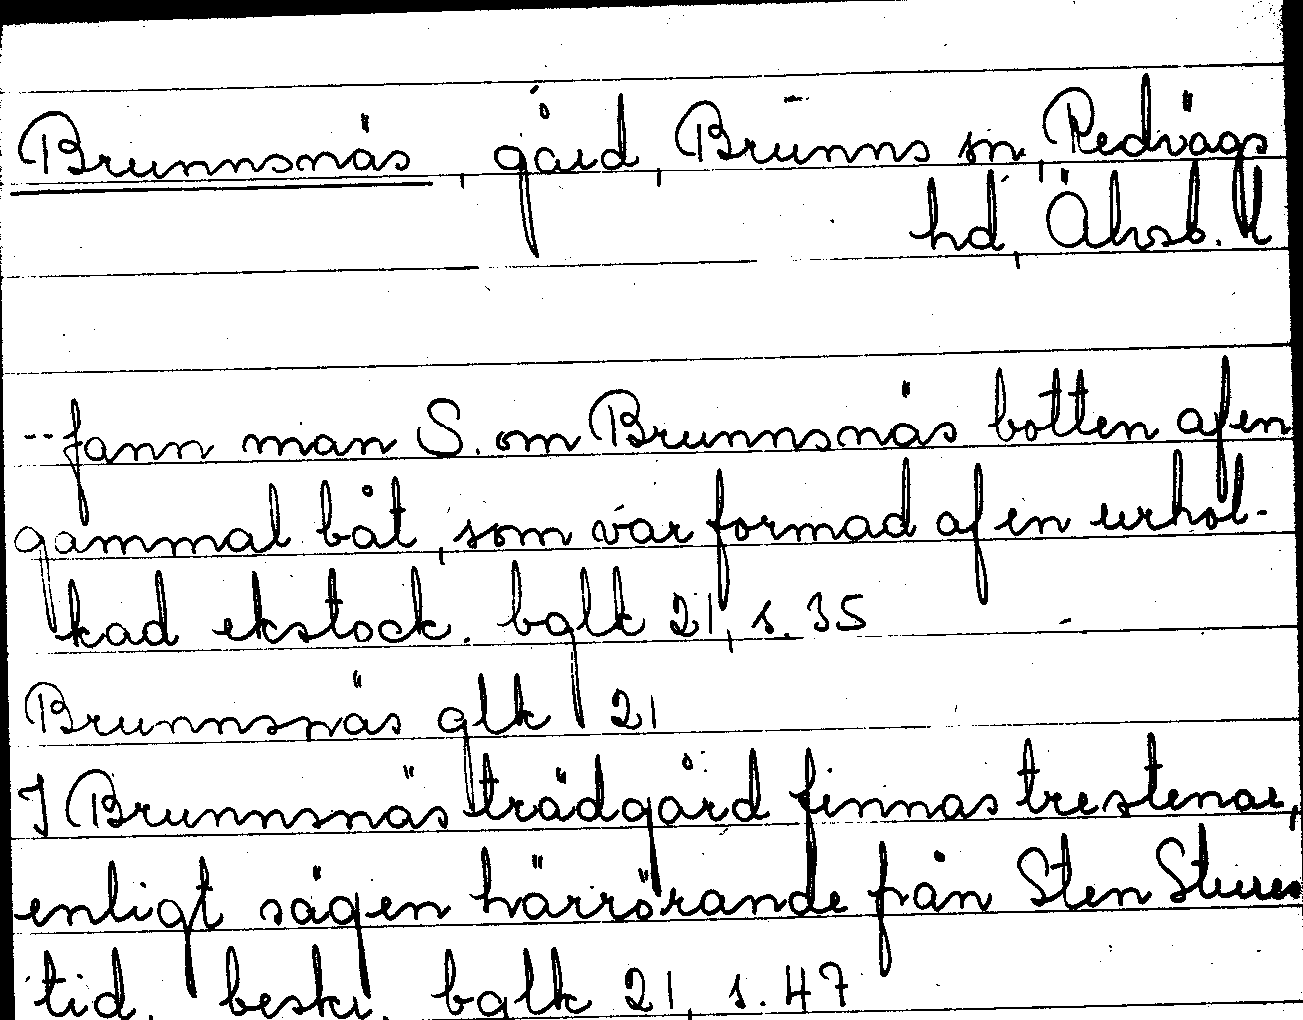 Brunnsnäs, gård, Brunns sn, Redvägs
hd, Älvsb. l
-- fann man S. om Brunnsnäs botten af en
gammal båt, som var formad af en urhol-
kad ekstock. bglk 21, s. 35
Brunnsnäs glk 21
I Brunnsnäs trädgård finnas tre stenar,
enligt sägen härrörande från Sten Stures
tid. beskr. bglk 21, s. 47